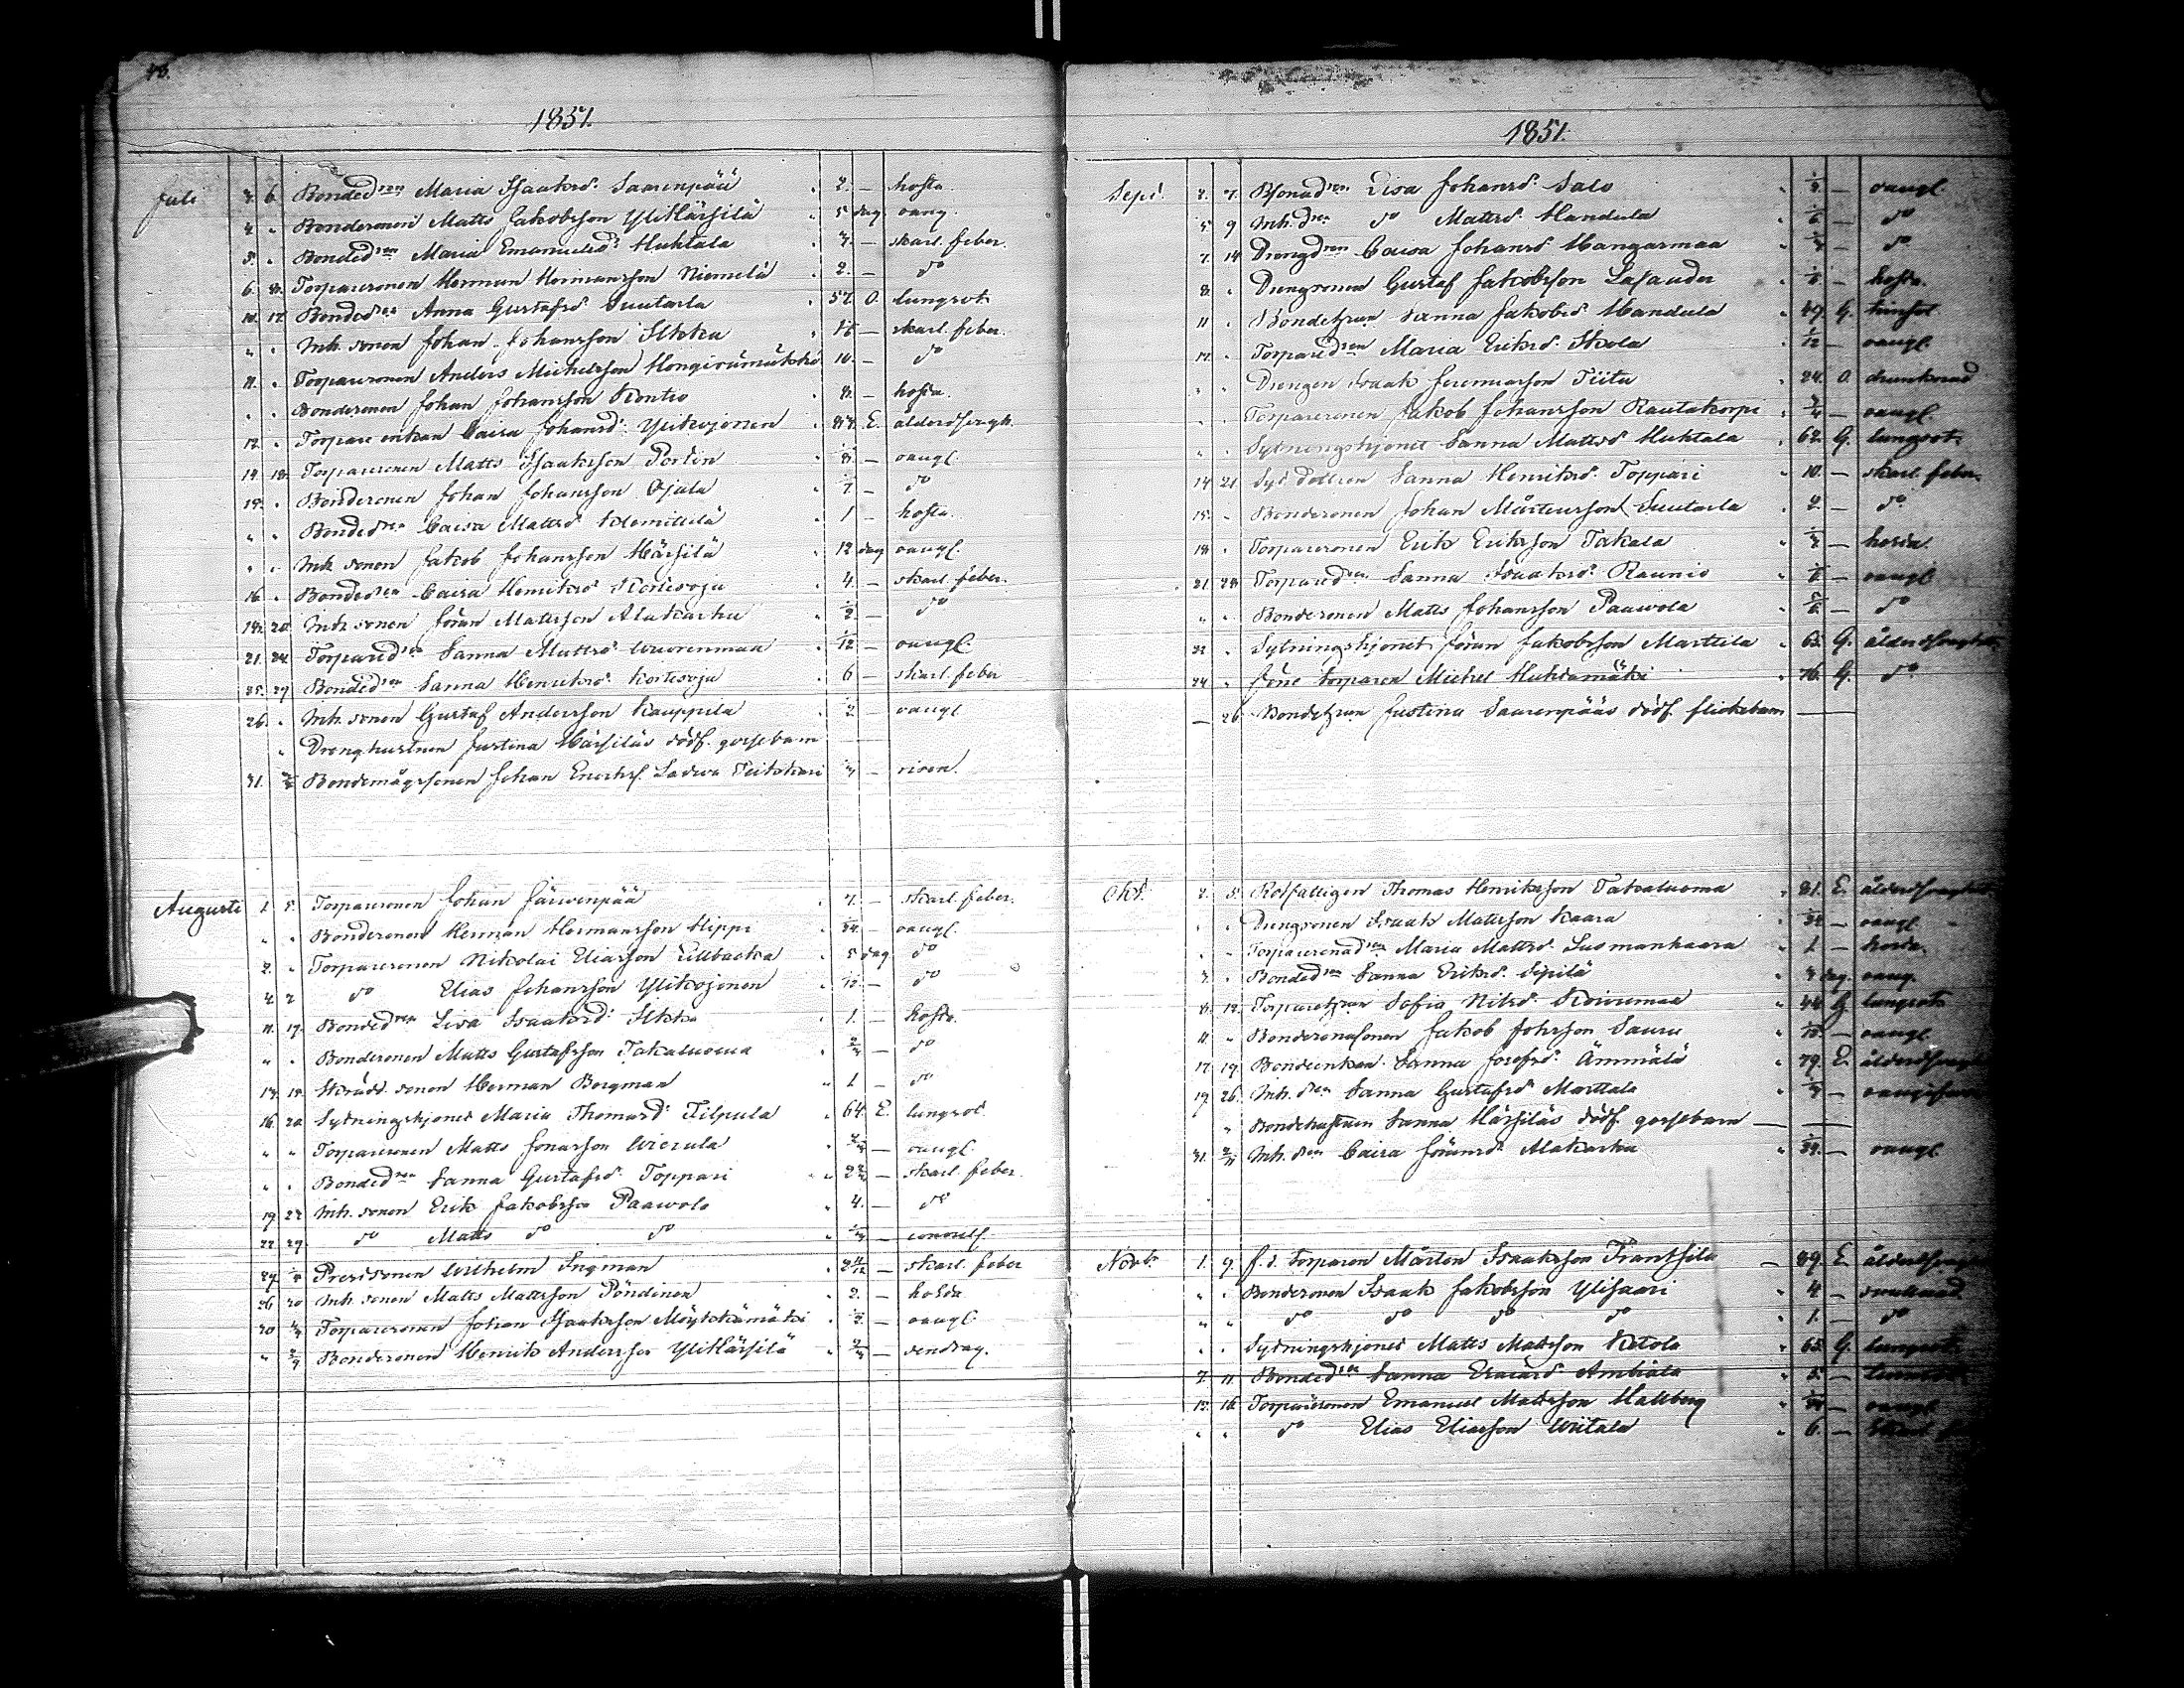 1851.
Juli 6. Bondedren Maria Isaaksd. Saarenpää 2. — hosta.
" Bondesonen Matts Jakobsson YliHärsilä 5 dag oang.
5. " Bondedren Maria Emanuelsd. Huhtala — skarl. feber.
6. 8. Torparesonen Herman Hermansson Niemelä 2. — do
10. 12. Bondedren Anna Gustafsd. Suutarla 57. O. lungsot.
" " Inh. sonen Johan Johansson Ilkka — skarl. feber.
11. " Torparesonen Anders Michelsson 10. — do
" " Bondesonen Johan Johansson Kontio 8. — hosta.
12. " Torpare enkan Caisa Johansd. Ylikojonen E.
14. 18. Torparesonen Matts Isaaksson Portin — oangl.
" Bondesonen Johan Johansson Ojala — do
" " Bondedren Caisa Mattsd. Klemittilä 1 — hosta.
" " Inh. sonen Jakob Johansson Härsilä 12 dag oangf.
16. " Bondedren Caisa Henriksd. Kortesoja 4. — skarl. feber.
18. 20. Inh. sonen Jöran Mattsson Alakarhu 1/2 — do
21. 24. Torparedren Sanna Mattsd. Wuorenmaa 1/12 — oangl.
25. 27 Bondedren Sanna Henriksd. Kortesoja 6 — skarl. feber
26. " Inh. sonen Gustaf Andersson Kauppila 1/2 — oangl.
" Drenghustrun Justina Härsiläs dödf. gossebarn
31. Bondemågssonen Johan Ladwa — risen.
Augusti 1. 5. Torparesonen Johan Järwenpää — skarl. feber.
" " Bondesonen Herman Hermansson Hippi 1/24. — oangl.
2. " Torparesonen Nikolai Eliasson Lillbacka 5 dag do
4 7 do Elias Johansson Ylikojonen 1/12. — do
11. 17. Bondedren Lisa Isaaksd. Ilkka 1. — hosta.
" " Bondesonen Matts Gustafsson Takaluoma — do
Skrädd. sonen Herman Bergman 1 — do
16. 20 Sytningshjonet Maria Thomasd. Filpula 64. E. lungsot.
" " Torparesonen Matts Jonasson Wierula — oangl.
" " Bondedren Sanna Gustafsd. Toppari — skarl. feber.
19 Inh. sonen Erik Jakobsson Paawola 4. — do
22 29. do Matts do do —
Prestsonen Wilhelm Ingman 2 11/12 — skarl. feber
26 Inh. sonen Matts Mattsson Pöndinen 2. — hosta
Torparesonen Johan Isaaksson — oangl.
" Bondesonen Henrik Andersson YliHärsilä — sendrag.
1851.
Sept. 2. 7. Lisa Johansd. Salo — oangl.
5 9 Inh. dren do Mattsd. Handula — do
7. 14 Drengdren Caisa Johansd. Hangasmaa — do
8. " Drengsonen Gustaf Jakobsson Lasander — hosta.
11 " Bondehustrun Sanna Jakobsd. Handula 49. G.
12. " Torparedren Maria Eriksd. Skola 1/12 — oangl.
" " Drengen Isaak Jeremiasson Tiitu 24. O. drunknad
" " Torparesonen Jakob Johansson Rautakorpi 3/4 — oangl.
" " Sytningshjonet Sanna Mattsd. Huhtala 62. G. lungsot.
14 21 Syt. dottren Sanna Henriksd. Toppari 10. — skarl. feber.
15. " Bondesonen Johan Mårtensson Suutarla 2. — do
18 " Torparesonen Erik Eriksson Takala — hosta.
21. 28. Torparedren Sanna Isaaksd. Raunio — oangl.
" " Bondesonen Matts Johansson Paawola — do
22 " Sytningshjonet Jöran Jakobsson Marttila 65. G.
24 " förre torparen Michel Huhtamäki 76. G. do
— 26 Bondehustrun Justina Saarenpääs dödf. flickebarn —
Okt. 2. 5. Rotfattigen Thomas Henriksson Takaluoma 81. E.
" " Drengsonen Isaak Mattsson Kaara — oangl.
" " Maria Mattsd. 1 — hosta.
" Bondedren Sanna Eriksd. Sipilä dag. oang.
8. 12. Torparehustrun Sofia Nilsd. Koivumaa 44 G. lungsot.
11 " Bondesonasonen Jakob Johsson Sauru — oangl.
17 19. Bondeenkan Sanna Josefsd. Ämmälä 79. E.
19. 26. Inh. dren Sanna Gustafsd. Marttala —
" Bondehustrun Sanna Härsiläs dödf. gossebarn — —
31. Inh. dren Caisa Jöransd. Alakarhu 1/24. — oangl.
Novbr. 1. 9. f. d. torparen Mårten Isaaksson Frantsila 89. E.
" " Bondesonen Isaak Jakobsson Ylisaari 4 —
" " do do do do 1. — do
" " Sytningshjonet Matts Mattsson Ketola 65. G. lungsot.
7. 11 Bondedren Sanna Ambiala 5. —
12. 16 Torparesonen Emanuel Mattsson Hallberg — oangl.
" " do Elias Eliasson Wiitala 6. —